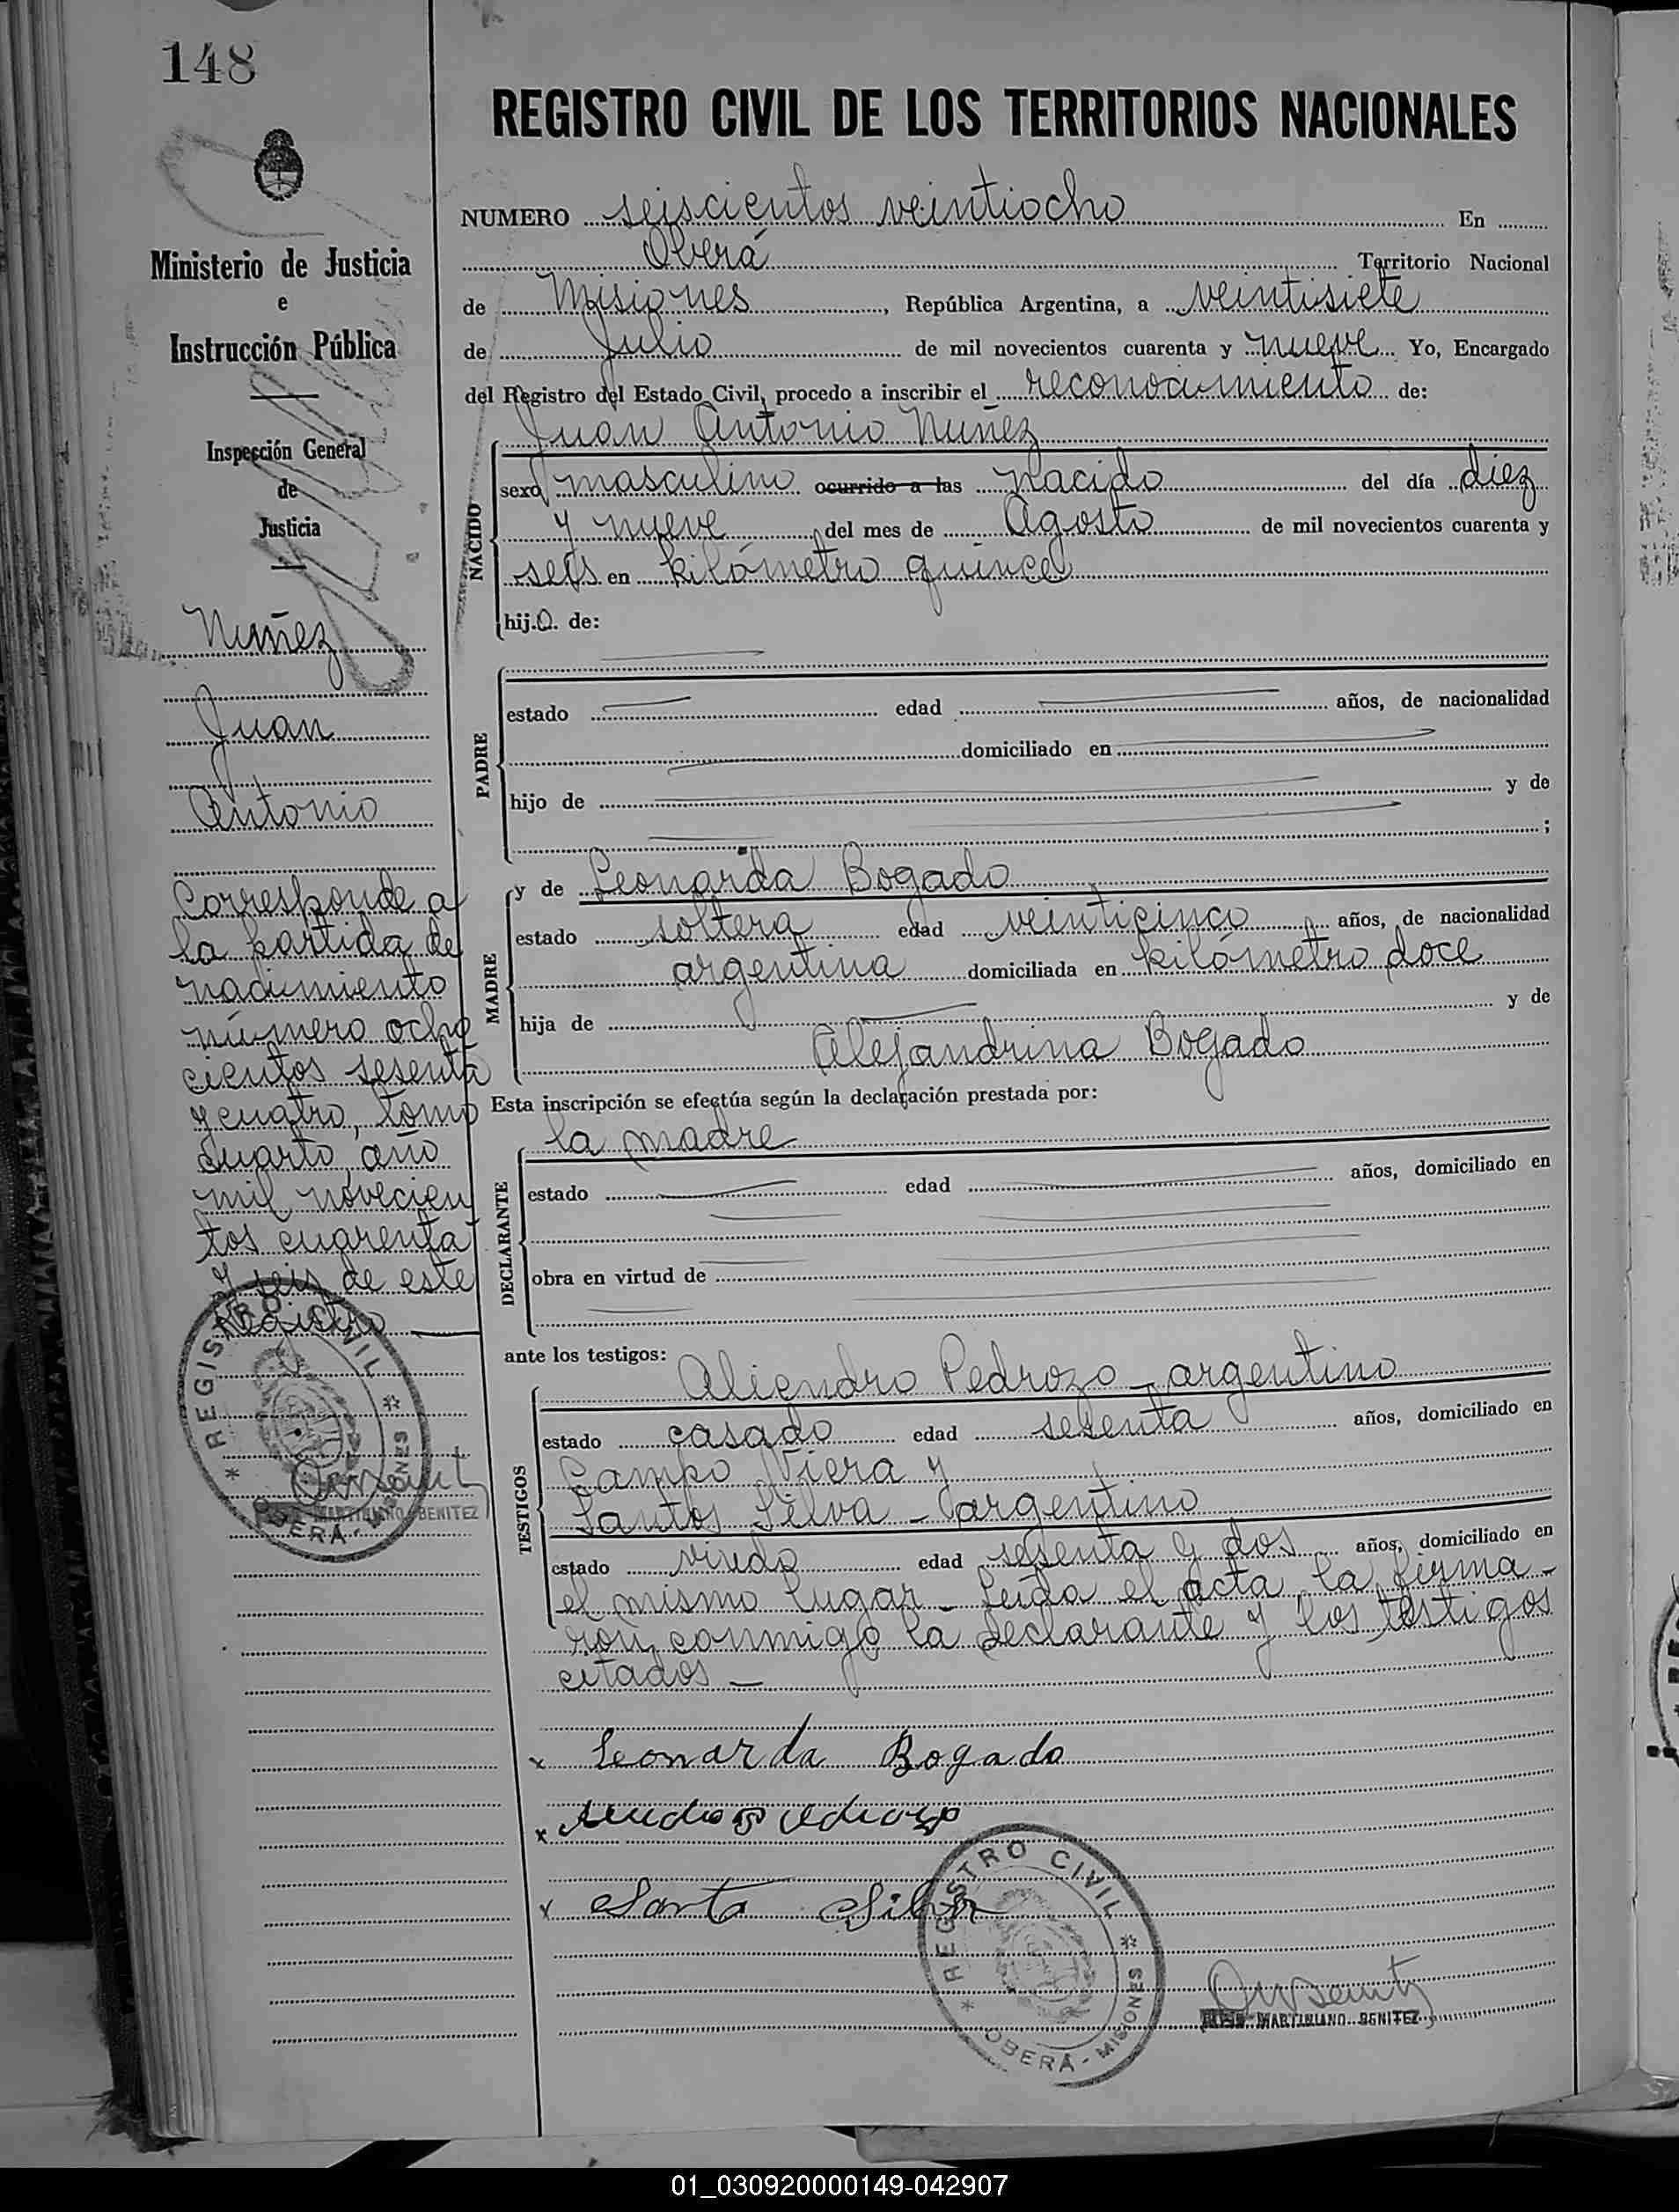 148
REGISTRO CIVIL DE LOS TERRITORIOS NACIONALES
NUMERO seiscientos veintiocho En
Oberá Territorio Nacional
de Misiones, República Argentina, a veintisiete
de Julio de mil novecientos cuarenta y nueve Yo, Encargado
del Registro del Estado Civil, procedo a inscribir el reconocimiento de:
Juan Antonio Nuñez
NACIDO
sexo masculino ocurrido a las nacido del día diez
y nueve del mes de Agosto de mil novecientos cuarenta y
seis en kilómetro quince
hijo de:
PADRE
estado edad años, de nacionalidad
domiciliado en
hijo de y de
;
MADRE
y de Leonarda Bogado
estado soltera edad veinticinco años, de nacionalidad
argentina domiciliada en kilómetro doce
hija de y de
Alejandrina Bogado
Esta inscripción se efectúa según la declaración prestada por:
la madre
DECLARANTE
estado edad años, domiciliado en
obra en virtud de
ante los testigos:
TESTIGOS
Aliendro Pedrozo - argentino
estado casado edad sesenta años, domiciliado en
Campo Viera y
Santos Silva - argentino
estado viudo edad sesenta y dos años, domiciliado en
el mismo lugar - Leída el acta la firma-
ron conmigo la declarante y los testigos
citados -
x Leonarda Bogado
x
x Santo Silva
REGISTRO CIVIL
OBERÁ - MISIONES
MARTINIANO BENITEZ
Ministerio de Justicia
e
Instrucción Pública
Inspección General
de
Justicia
Nuñez
Juan
Antonio
Corresponde a
la partida de
nacimiento
número ocho
cientos sesenta
y cuatro, tomo
cuarto, año
mil novecien
tos cuarenta
y seis de este
Registro
REGISTRO CIVIL
OBERÁ - MISIONES
MARTINIANO BENITEZ
01_030920000149-042907